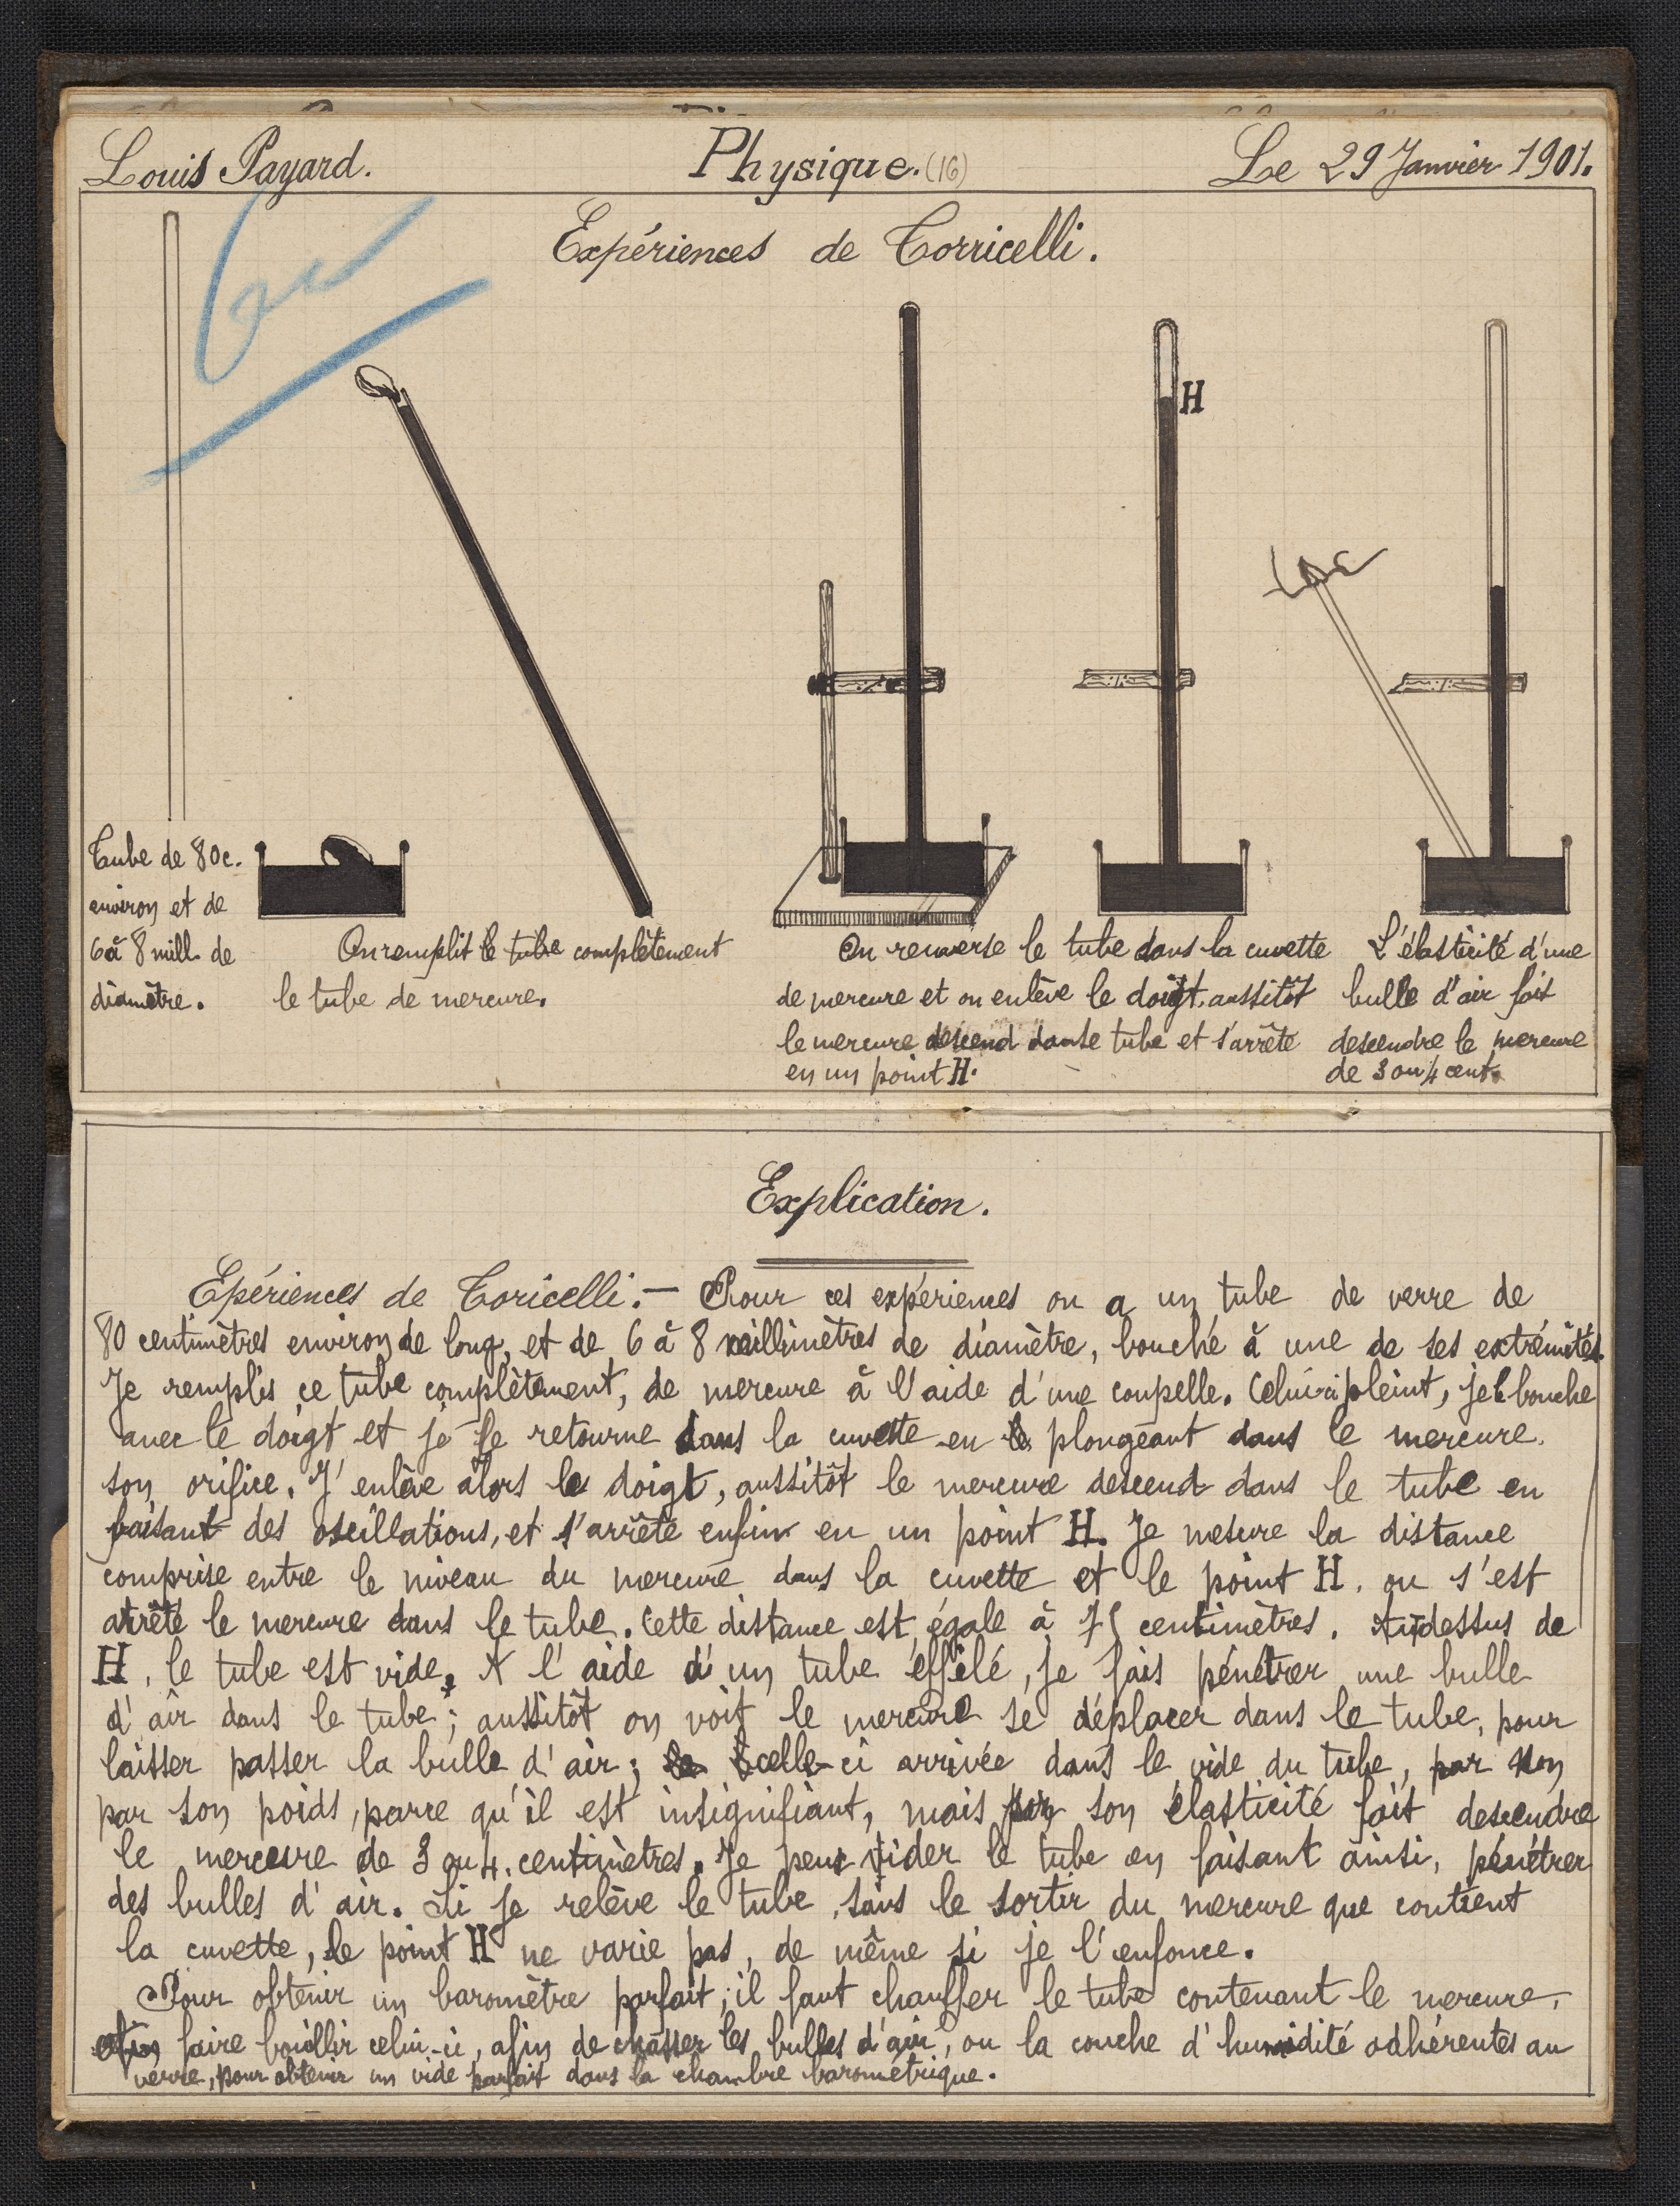 Louis Payard. Physique. (16) Le 29 Janvier 1901.
Expériences de Torricelli.
H
Tube de 80c.
environ et de
6 à 8 mill. de
diamètre.
On remplit le tube complètement
le tube de mercure.
On renverse le tube dans la cuvette
de mercure et on enlève le doigt, aussitôt
le mercure descend dans le tube et s'arrête
en un point H.
L'élasticité d'une
bulle d'air fait
descendre le mercure
de 3 ou 4 cent.
Explication.
Epériences de Toricelli. — Pour ces expériences on a un tube de verre de
80 centimètres environ de long, et de 6 à 8 millimètres de diamètre, bouché à une de ses extrémités.
Je remplis ce tube complètement, de mercure à l'aide d'une coupelle. Celui-ci pleint, je le bouche
avec le doigt et je le retourne dans la cuvette en plongeant dans le mercure.
son orifice. J'enlève alors le doigt, aussitôt le mercure descend dans le tube en
faisant des oscillations, et s'arrête enfin en un point H. Je mesure la distance
comprise entre le niveau du mercure dans la cuvette et le point H, ou s'est
arrêté le mercure dans le tube. Cette distance est égale à 75 centimètres. Au-dessus de
H, le tube est vide. A l'aide d'un tube effilé, je fais pénétrer une bulle
d'air dans le tube ; aussitôt on voit le mercure se déplacer dans le tube, pour
laisser passer la bulle d'air ; celle-ci arrivée dans le vide du tube, par non
par son poids, parce qu'il est insignifiant, mais par son élasticité fait descendre
le mercure de 3 ou 4 centimètres. Je peux vider le tube en faisant ainsi, pénétrer
des bulles d'air. Si je relève le tube, sans le sortir du mercure que contient
la cuvette, le point H ne varie pas, de même si je l'enfonce.
Pour obtenir un baromètre parfait, il faut chauffer le tube contenant le mercure,
faire bouillir celui-ci, afin de chasser les bulles d'air, ou la couche d'humidité adhérentes au
verre, pour obtenir un vide parfait dans la chambre barométrique.